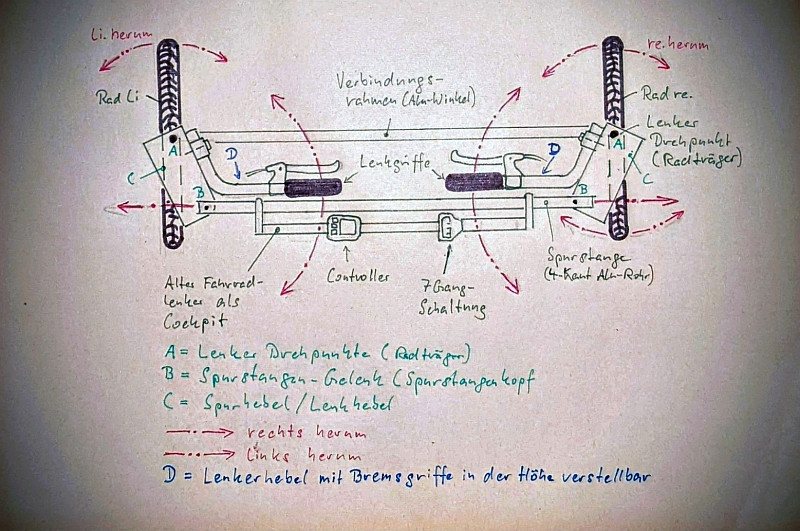 li. herum
re. herum
Verbindungs-
rahmen (Alu-Winkel)
Rad Li
Rad re.
Lenker
Drehpunkt
(Radträger)
A
A
D
Lenkgriffe
D
C
C
B
B
Spurstange
(4-Kant Alu-Rohr)
Altes Fahrrad-
lenker als
Cockpit
Controller
7 Gang-
Schaltung
A = Lenker Drehpunkte (Radträger)
B = Spurstangen-Gelenk (Spurstangenkopf
C = Spurhebel/Lenkhebel
rechts herum
links herum
D = Lenkerhebel mit Bremsgriffe in der Höhe verstellbar